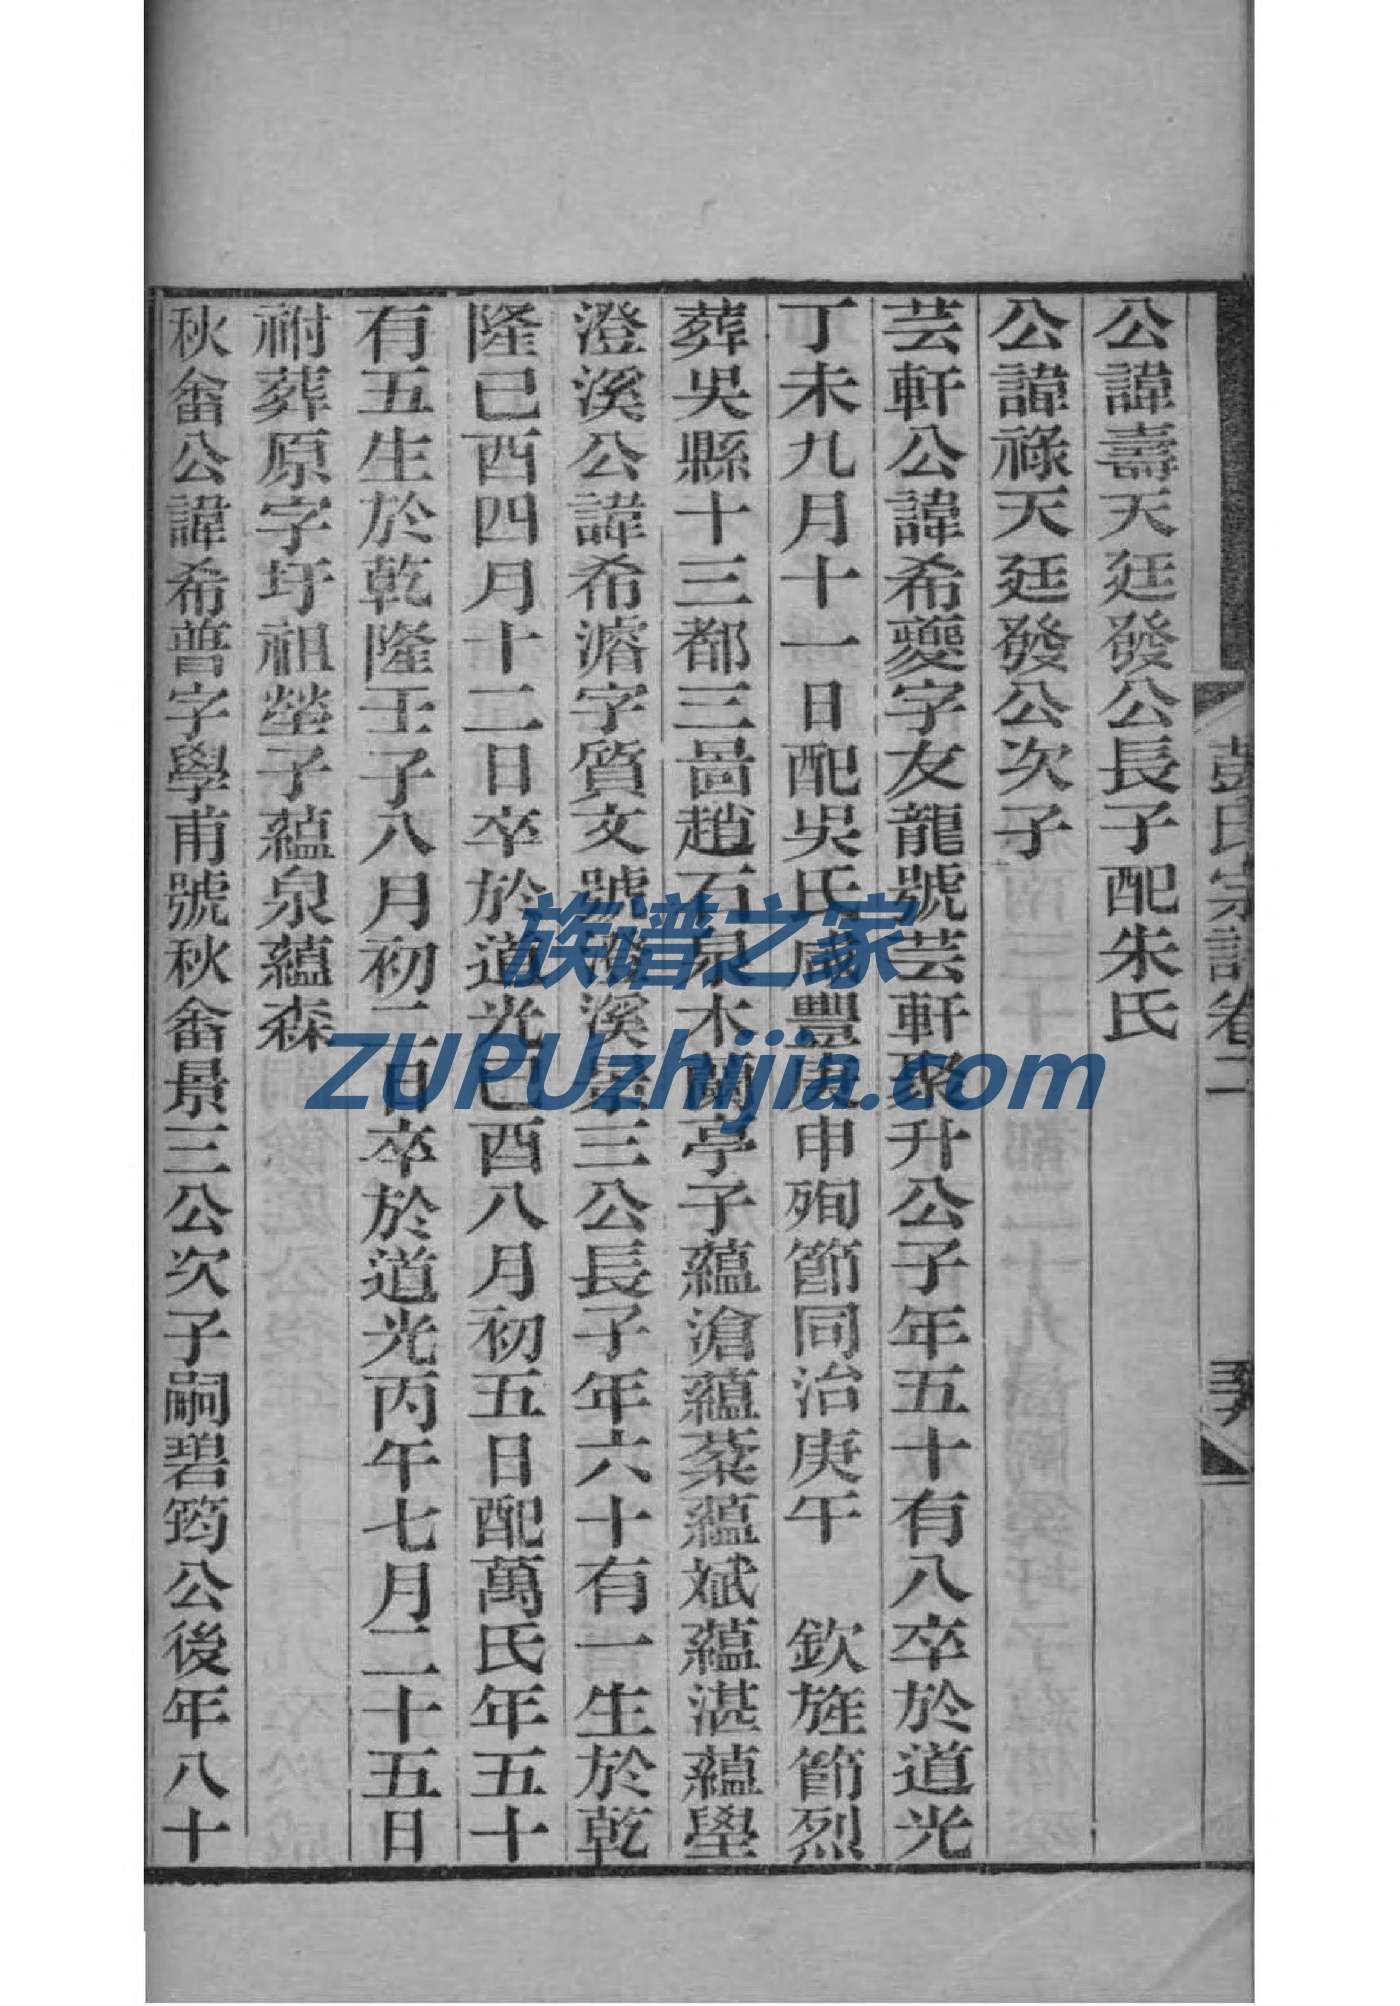 彭氏宗譜卷二
公諱壽天廷發公長子配朱氏
公諱祿天廷發公次子
芸軒公諱希夔字友龍號芸軒聚升公子年五十有八卒於道光
丁未九月十一日配吳氏咸豐庚申殉節同治庚午　欽旌節烈
葬吳縣十三都三啚趙石泉木蘭亭子蘊滄蘊棻蘊斌蘊湛蘊壆
澄溪公諱希濬字質文號澄溪景三公長子年六十有一生於乾
隆己酉四月十二日卒於道光己酉八月初五日配萬氏年五十
有五生於乾隆壬子八月初二日卒於道光丙午七月二十五日
祔葬原字圩祖塋子蘊泉蘊森
秋畬公諱希普字學甫號秋畬景三公次子嗣碧筠公後年八十
族谱之家
ZUPUzhijia.com